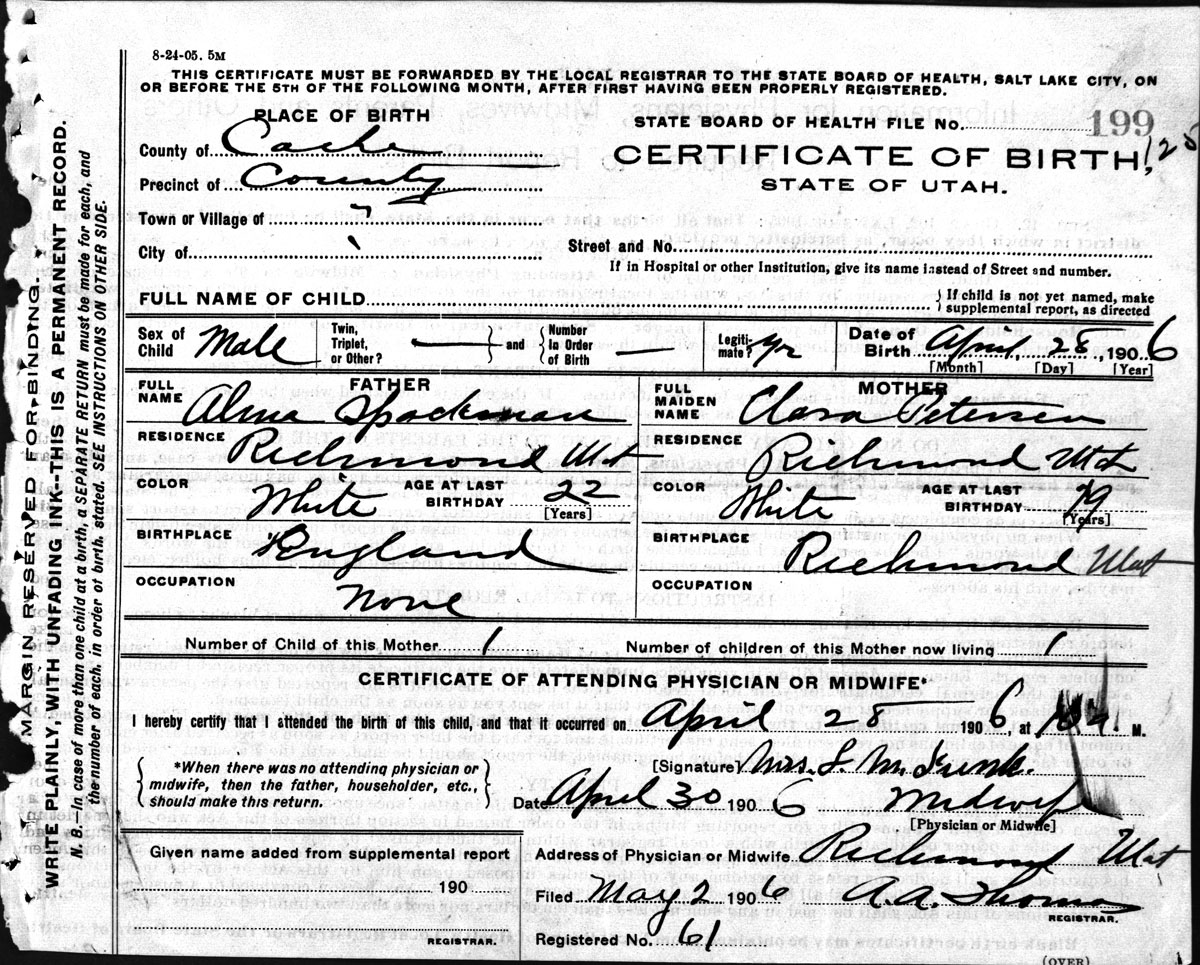 8-24-05. 5M
THIS CERTIFICATE MUST BE FORWARDED BY THE LOCAL REGISTRAR TO THE STATE BOARD OF HEALTH, SALT LAKE CITY, ON
OR BEFORE THE 5TH OF THE FOLLOWING MONTH, AFTER FIRST HAVING BEEN PROPERLY REGISTERED.
PLACE OF BIRTH
STATE BOARD OF HEALTH FILE No. 199
County of Cache
CERTIFICATE OF BIRTH, 125
Precinct of County
STATE OF UTAH.
Town or Village of
City of
Street and No.
If in Hospital or other Institution, give its name instead of Street and number.
FULL NAME OF CHILD
If child is not yet named, make
supplemental report, as directed
Sex of Child Male Twin, Triplet, or Other? — and Number In Order of Birth — Legiti-mate? Date of Birth April, 28, 1906
[Month] [Day] [Year]
FATHER
FULL NAME Alma Spackman
RESIDENCE Richmond Utah
COLOR White AGE AT LAST BIRTHDAY 22
[Years]
BIRTHPLACE England
OCCUPATION None
MOTHER
FULL MAIDEN NAME Clara Petersen
RESIDENCE Richmond Utah
COLOR White AGE AT LAST BIRTHDAY 19
[Years]
BIRTHPLACE Richmond Utah
OCCUPATION
Number of Child of this Mother 1 Number of children of this Mother now living 1
CERTIFICATE OF ATTENDING PHYSICIAN OR MIDWIFE*
I hereby certify that I attended the birth of this child, and that it occurred on April 28 1906, at M.
*When there was no attending physician or
midwife, then the father, householder, etc.,
should make this return.
[Signature] Mrs. L. M. Funk.
Date April 30 1906 Midwife
[Physician or Midwife]
Given name added from supplemental report
190
REGISTRAR.
Address of Physician or Midwife Richmond Utah
Filed May 2 1906 A. A. Thomas
REGISTRAR.
Registered No. 61
(OVER)
MARGIN RESERVED FOR BINDING.
WRITE PLAINLY WITH UNFADING INK--THIS IS A PERMANENT RECORD.
N. B. In case of more than one child at a birth, a SEPARATE RETURN must be made for each, and
the number of each, in order of birth, stated. SEE INSTRUCTIONS ON OTHER SIDE.